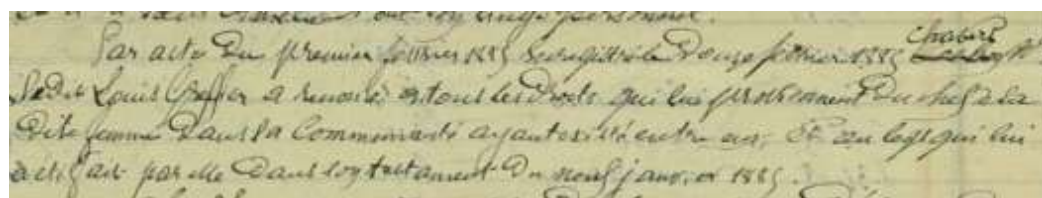 tout son linge personnel.
Par acte du premier février 1885 enregistré le douze février 1885 Chabert N.
ledit Louis Greffier a renoncé à tous les droits qui lui proviennent du chef de sa
dite femme dans la Communauté ayant existé entre eux, et au legs qui lui
a été fait par elle dans son testament du neuf janvier 1885.